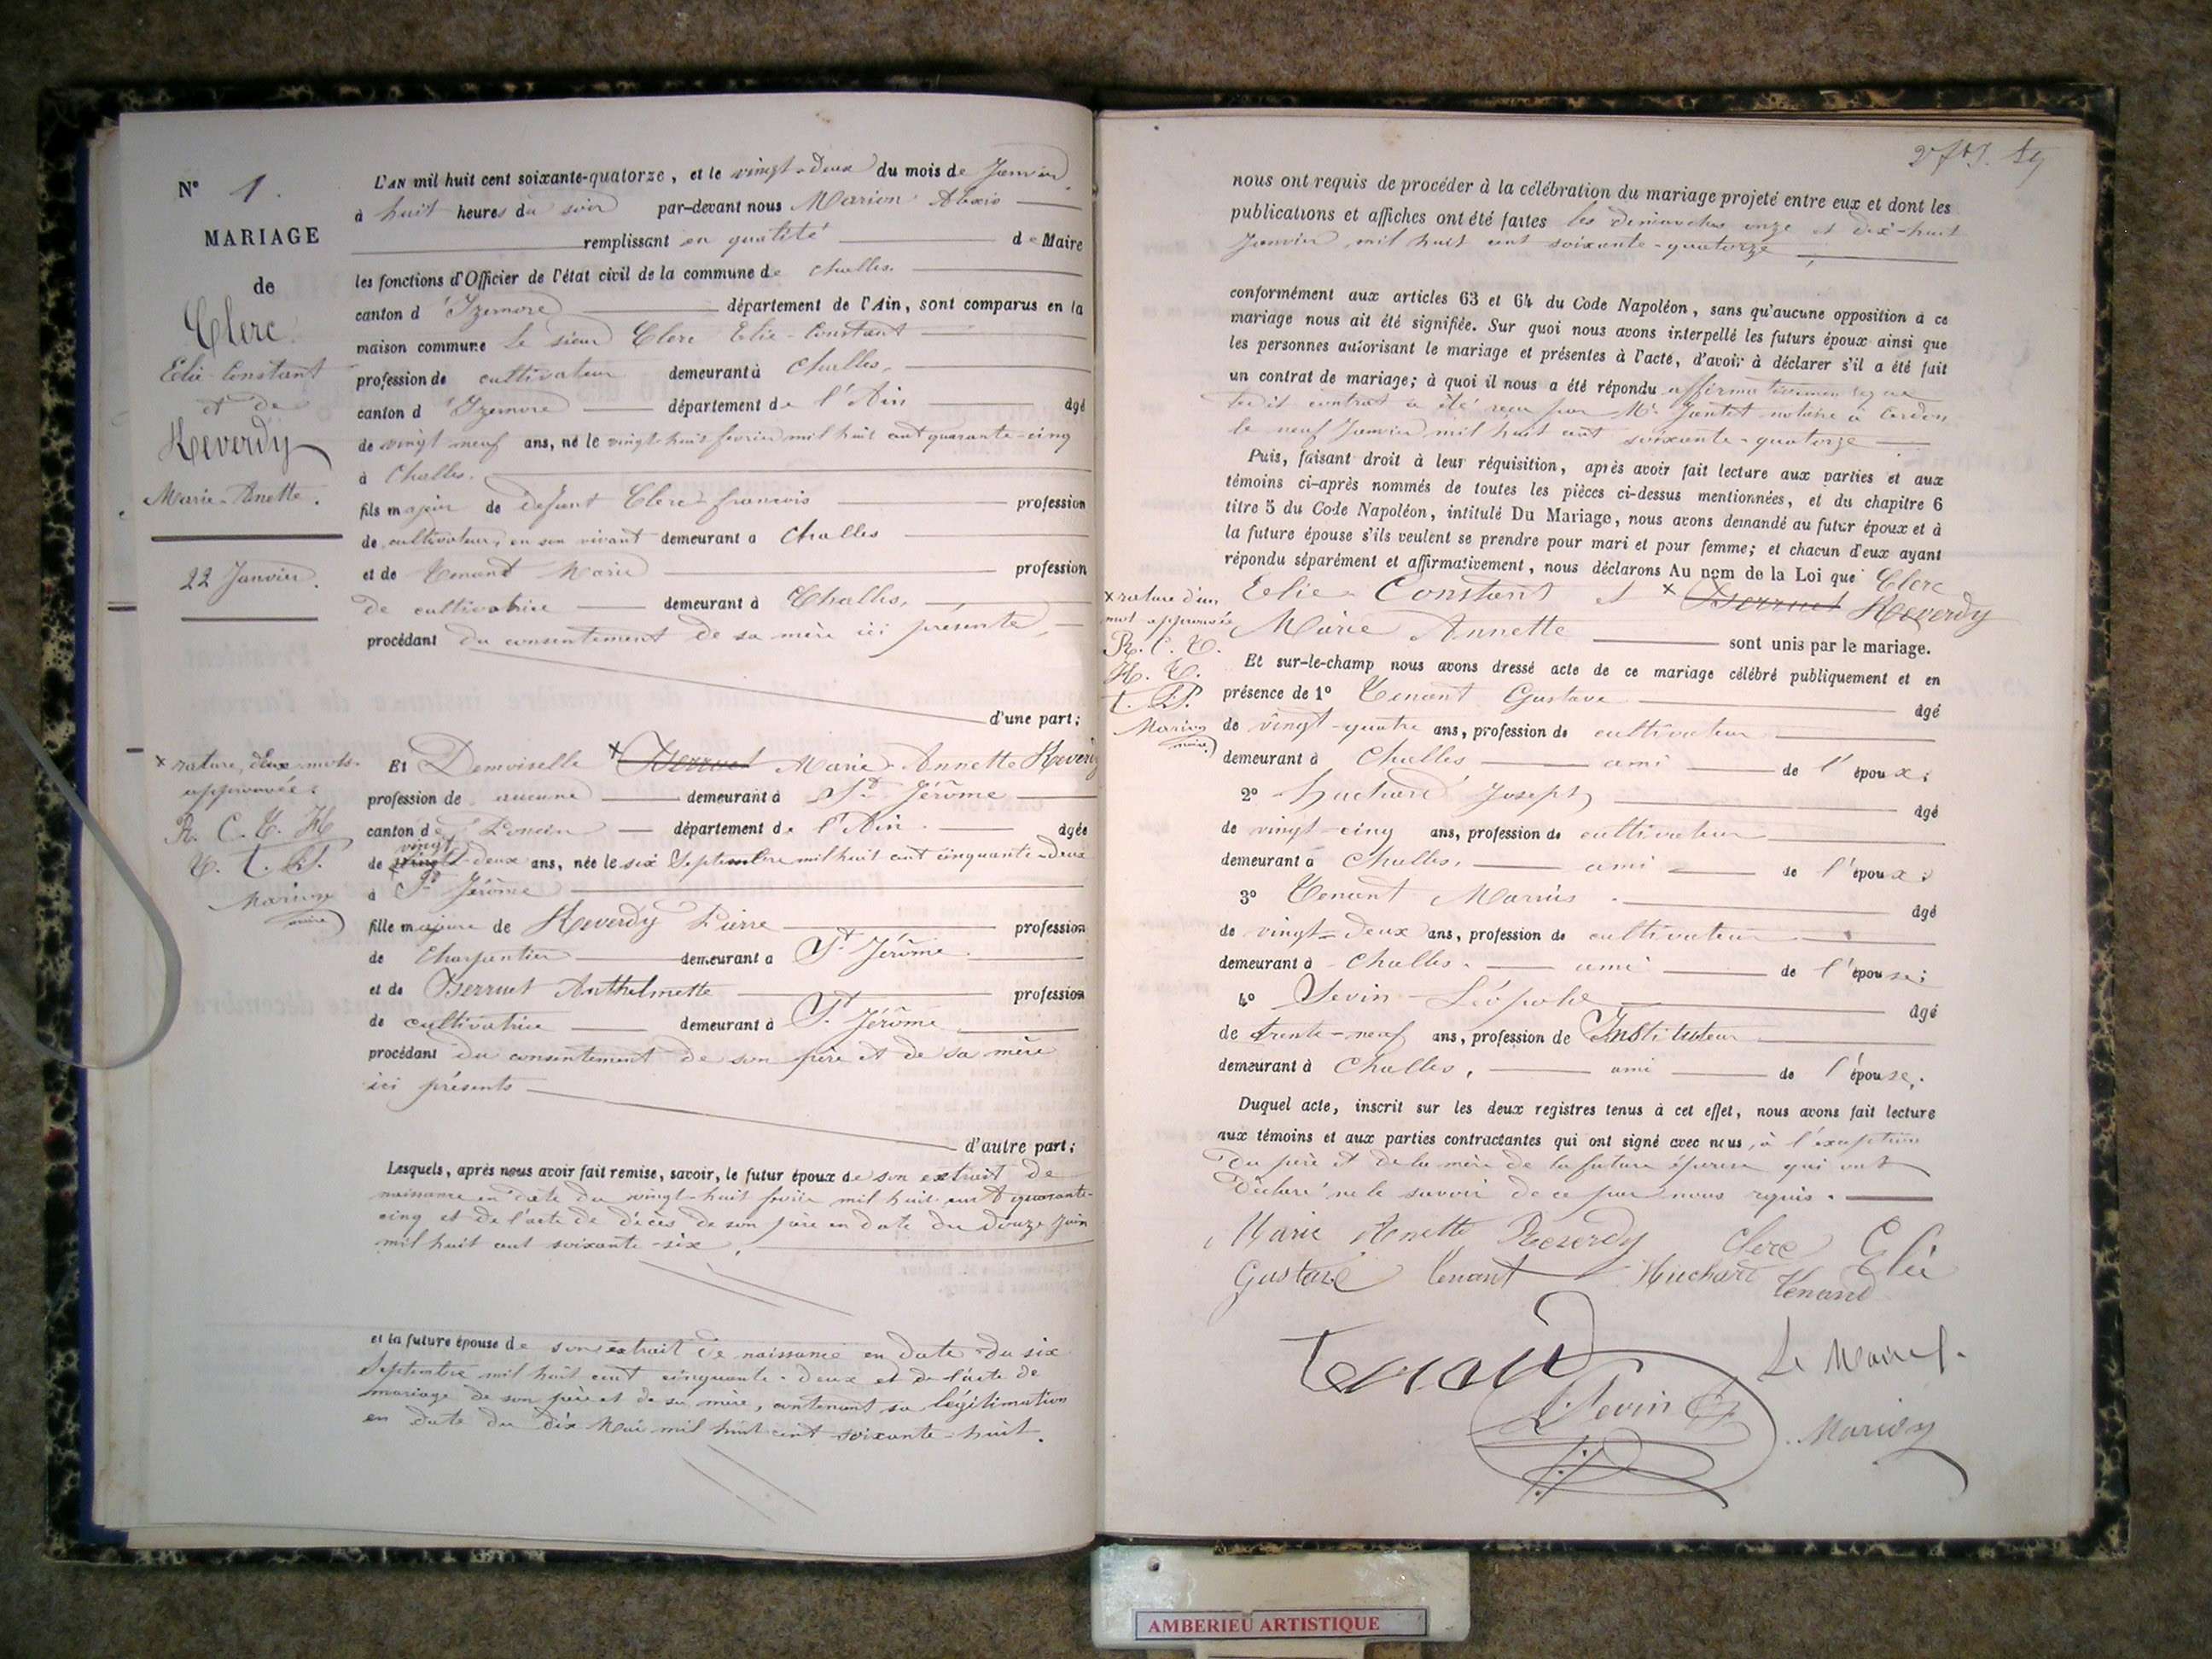 N° 1.
MARIAGE
de
Clerc
Elie-Constant
et de
Reverdy
Marie-Anette.
22 Janvier.
L'AN mil huit cent soixante-quatorze, et le vingt-deux du mois de Janvier
à huit heures du soir par-devant nous Marion Alexis
remplissant en qualité de Maire
les fonctions d'Officier de l'état civil de la commune de Challes.
canton d'Izernore département de l'Ain, sont comparus en la
maison commune le sieur Clerc Elie-Constant
profession de cultivateur demeurant à Challes,
canton d'Izernore département de l'Ain âgé
de vingt neuf ans, né le vingt-huit fevrier mil huit cent quarante-cinq
à Challes.
fils majeur de défunt Clerc françois profession
de cultivateur, en son vivant demeurant à Challes
et de Tenand Marie profession
de cultivatrice demeurant à Challes,
procédant du consentement de sa mère ici présente,
d'une part;
x rature, deux mots
approuvée.
R. C. T. H
T. t. S.
Marion
maire
Et Demoiselle x Berruet Marie-Annette Reverdy
profession de aucune demeurant à St Jérôme
canton de Poncin département de l'Ain âgée
vingt
de vingt-deux ans, née le six Septembre mil huit cent cinquante-deux
à St Jérôme
fille majeure de Reverdy Pierre profession
de Charpentier demeurant à St Jérôme
et de Berruet Anthelmette profession
de cultivatrice demeurant à St Jérôme
procédant du consentement de son père et de sa mère
ici présents
d'autre part;
Lesquels, après nous avoir fait remise, savoir, le futur époux de son extrait de
naissance en date du vingt-huit février mil huit cent quarante-
cinq et de l'acte de décès de son père en date du douze Juin
mil huit cent soixante-six,
et la future épouse de son extrait de naissance en date du six
Septembre mil huit cent cinquante-deux et de l'acte de
mariage de son père et de sa mère, contenant sa légitimation
en date du dix Mai mil huit cent soixante-huit.
nous ont requis de procéder à la célébration du mariage projeté entre eux et dont les
publications et affiches ont été faites les dimanches onze et dix-huit
Janvier mil huit cent soixante-quatorze,
conformément aux articles 63 et 64 du Code Napoléon, sans qu'aucune opposition à ce
mariage nous ait été signifiée. Sur quoi nous avons interpellé les futurs époux ainsi que
les personnes autorisant le mariage et présentes à l'acte, d'avoir à déclarer s'il a été fait
un contrat de mariage; à quoi il nous a été répondu affirmativement que
ledit contrat a été reçu par Me Jantet notaire à Cerdon
le neuf Janvier mil huit cent soixante-quatorze
Puis, faisant droit à leur réquisition, après avoir fait lecture aux parties et aux
témoins ci-après nommés de toutes les pièces ci-dessus mentionnées, et du chapitre 6
titre 5 du Code Napoléon, intitulé Du Mariage, nous avons demandé au futur époux et à
la future épouse s'ils veulent se prendre pour mari et pour femme; et chacun d'eux ayant
répondu séparément et affirmativement, nous déclarons Au nom de la Loi que Clerc
Elie Constant et x Berruet Reverdy
Marie Annette sont unis par le mariage.
x rature d'un
mot approuvée
R. C. T.
H. T.
t. S.
Marion
maire
Et sur-le-champ nous avons dressé acte de ce mariage célébré publiquement et en
présence de 1° Tenant Gustave âgé
de vingt-quatre ans, profession de cultivateur
demeurant à Challes ami de l'époux;
2° Huchard Joseph âgé
de vingt-cinq ans, profession de cultivateur
demeurant à Challes, ami de l'époux;
3° Tenant Marius âgé
de vingt-deux ans, profession de cultivateur
demeurant à Challes. ami de l'épouse;
4° Sevin Léopold âgé
de trente-neuf ans, profession de Instituteur
demeurant à Challes, ami de l'épouse,
Duquel acte, inscrit sur les deux registres tenus à cet effet, nous avons fait lecture
aux témoins et aux parties contractantes qui ont signé avec nous, à l'exception
du père et de la mère de la future épouse qui ont
déclaré ne le savoir de ce par nous requis.
Marie Anette Reverdy Clerc Elie
Gustave tenant Huchard Tenand
Tenand
Le Maire
L. Sevin
Marion
AMBERIEU ARTISTIQUE